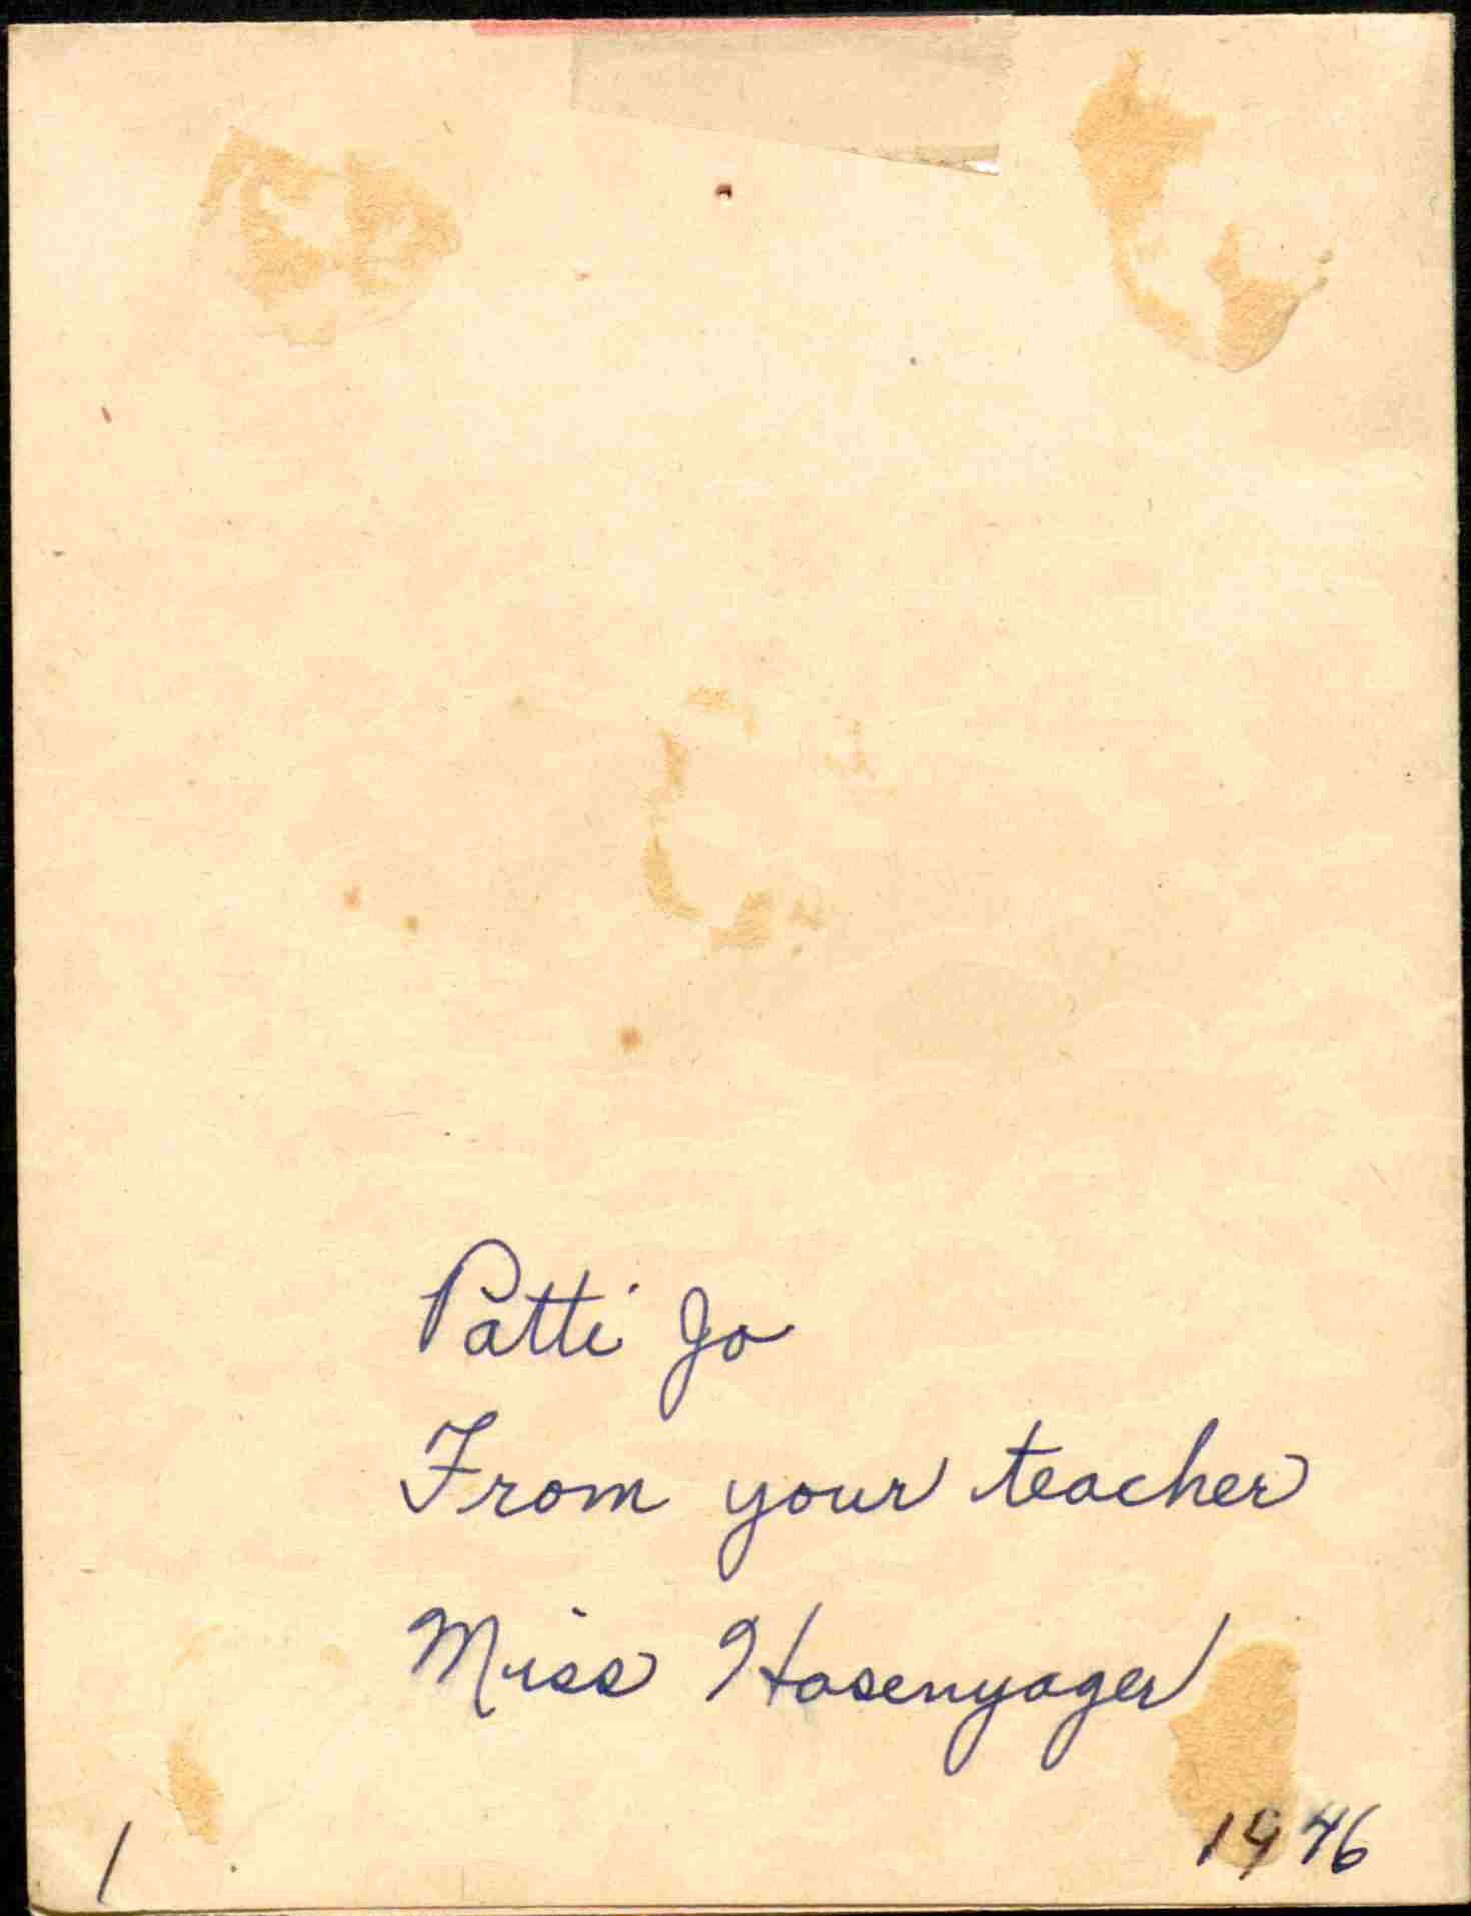 Patti Jo
From your teacher
Miss Hasenyager
1946
1